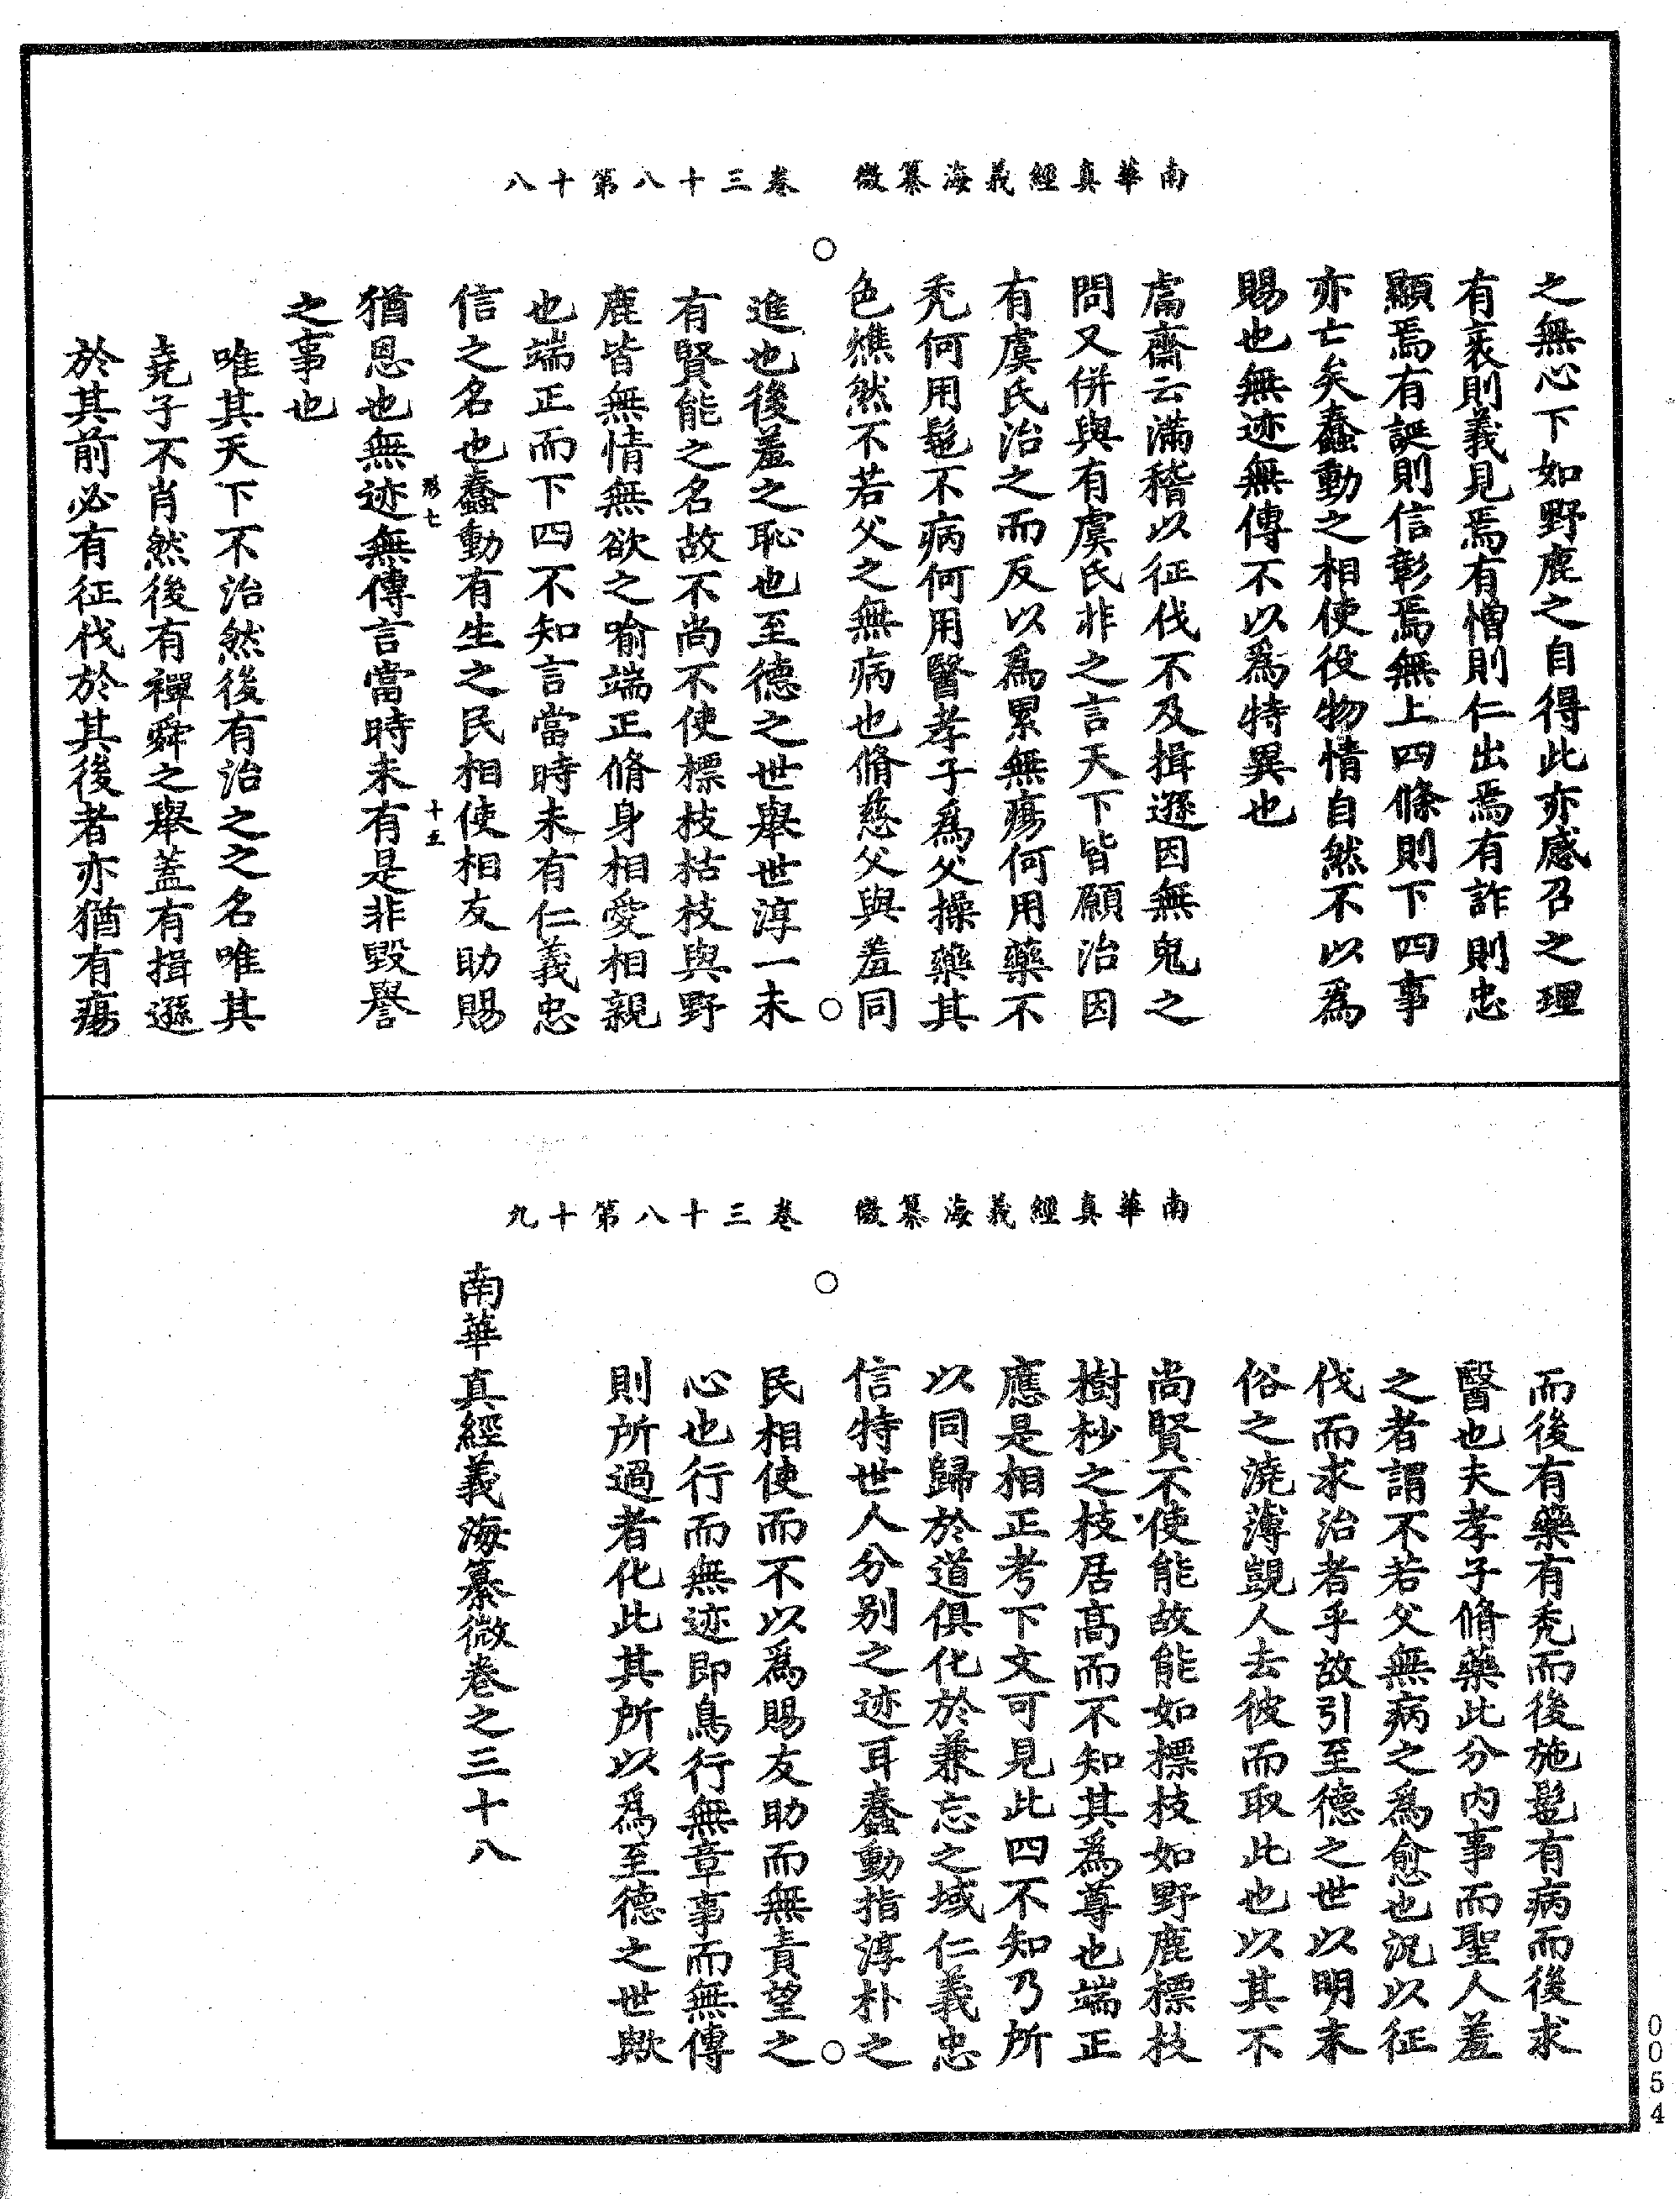 南華真經義海纂微　卷三十八第十八
之無心下如野鹿之自得此亦感召之理
有衺則義見焉有憎則仁出焉有詐則忠
顯焉有誕則信彰焉無上四條則下四事
亦亡矣蠢動之相使役物情自然不以爲
賜也無迹無傳不以爲特異也
鬳齋云滿稽以征伐不及揖遜因無鬼之
問又併與有虞氏非之言天下皆願治因
有虞氏治之而反以爲累無瘍何用藥不
禿何用髢不病何用醫孝子爲父操藥其
色燋然不若父之無病也脩慈父與羞同
進也後羞之恥也至德之世舉世淳一未
有賢能之名故不尚不使標枝枯枝與野
鹿皆無情無欲之喻端正脩身相愛相親
也端正而下四不知言當時未有仁義忠
信之名也蠢動有生之民相使相友助賜
形七　十五
猶恩也無迹無傳言當時未有是非毀譽
之事也
唯其天下不治然後有治之之名唯其
堯子不肖然後有禪舜之舉蓋有揖遜
於其前必有征伐於其後者亦猶有瘍
南華真經義海纂微　卷三十八第十九
而後有藥有禿而後施髢有病而後求
醫也夫孝子脩藥此分內事而聖人羞
之者謂不若父無病之爲愈也況以征
伐而求治者乎故引至德之世以明末
俗之澆薄覬人去彼而取此也以其不
尚賢不使能故能如標枝如野鹿標枝
樹杪之枝居高而不知其爲尊也端正
應是相正考下文可見此四不知乃所
以同歸於道俱化於兼忘之域仁義忠
信特世人分別之迹耳蠢動指淳朴之
民相使而不以爲賜友助而無責望之
心也行而無迹即鳥行無章事而無傳
則所過者化此其所以爲至德之世歟
南華真經義海纂微卷之三十八
0054